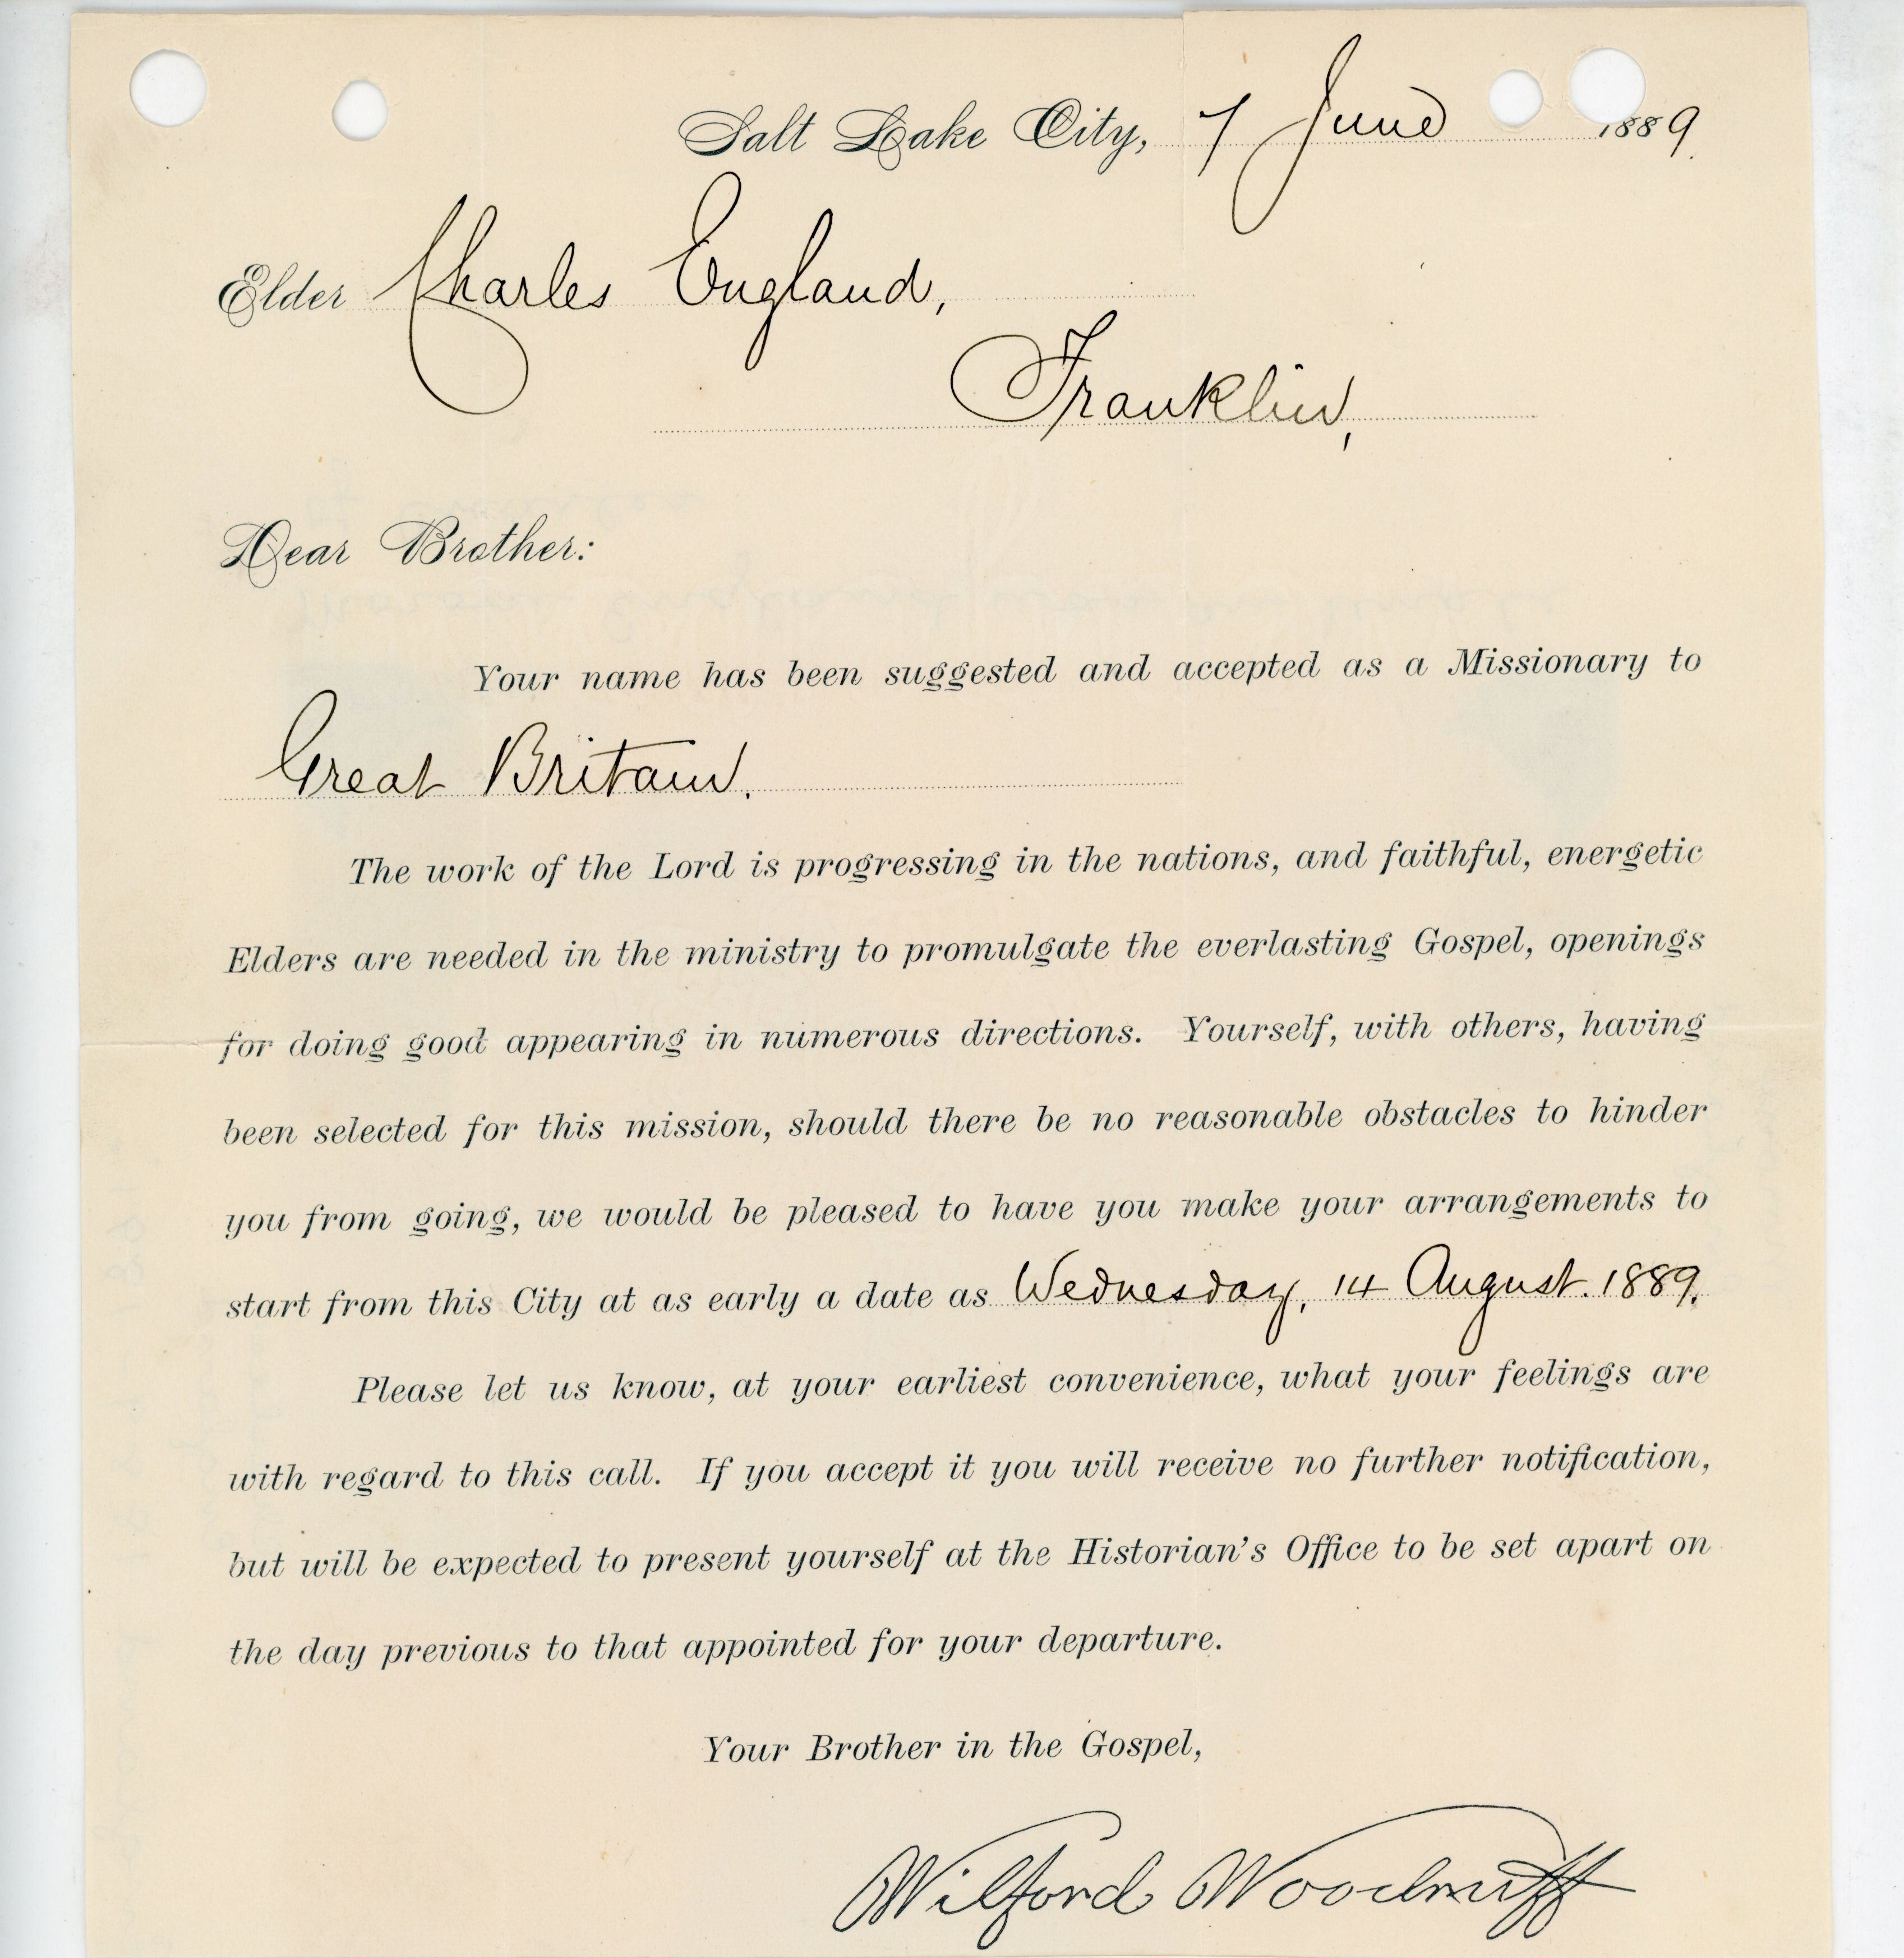 Salt Lake City, 7 June 1889.
Elder Charles England,
Franklin,
Dear Brother:
Your name has been suggested and accepted as a Missionary to
Great Britain.
The work of the Lord is progressing in the nations, and faithful, energetic
Elders are needed in the ministry to promulgate the everlasting Gospel, openings
for doing good appearing in numerous directions. Yourself, with others, having
been selected for this mission, should there be no reasonable obstacles to hinder
you from going, we would be pleased to have you make your arrangements to
start from this City at as early a date as Wednesday, 14 August. 1889.
Please let us know, at your earliest convenience, what your feelings are
with regard to this call. If you accept it you will receive no further notification,
but will be expected to present yourself at the Historian's Office to be set apart on
the day previous to that appointed for your departure.
Your Brother in the Gospel,
Wilford Woodruff